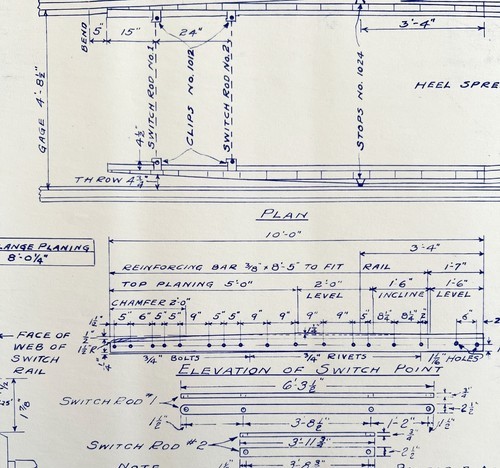 BEND
5"
15"
24"
3'-4"
GAGE 4'-8½"
SWITCH ROD No.1
CLIPS No. 1012
SWITCH ROD No.2
STOPS No. 1024
HEEL SPRE
4½"
THROW 4¾"
PLAN
10'-0"
LANGE PLANING
8'-0¼"
3'-4"
REINFORCING BAR ⅜" x 8'-5" TO FIT RAIL
1'-7"
TOP PLANING 5'-0"
2'-0" LEVEL
1'-6" INCLINE
1'-6" LEVEL
CHAMFER 2'-0"
1½" 5" 6" 5" 5" 9" 5" 9" 9" 9" 9" 5" 8¼" 8¼"
6"
FACE OF
WEB OF
SWITCH
RAIL
¾" BOLTS
¾" RIVETS
HOLES
ELEVATION OF SWITCH POINT
6'-3½"
SWITCH ROD #1
¾"
2½"
1½"
3'-8½"
1'-2"
1½"
1⅞"
SWITCH ROD #2
3'-11¾"
¾"
2½"
1½"
NOTE